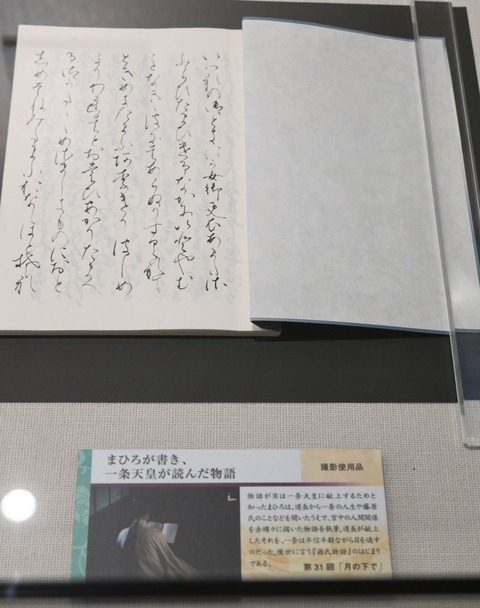 いつれの御ときにか女御更衣あまたさ
ふらひたまひけるなかにいとやむ
ことなきゝはにはあらぬかすくれて
ときめきたまふありけりはしめ
よりわれはとおもひあかりたまへ
る御かた〱めさましきものにおと
しめそねみたまふおなしほと
まひろが書き、
一条天皇が読んだ物語
撮影使用品
物語が実は一条天皇に献上するためと
知ったまひろは、道長から一条の人生や藤原
氏のことなどを聞いたうえで、宮中の人間関係
を赤裸々に描いた物語を執筆。道長が献上
したそれを、一条は半信半疑ながら目を通す
のだった。後世に言う『源氏物語』のはじまり
である。
第31回「月の下で」